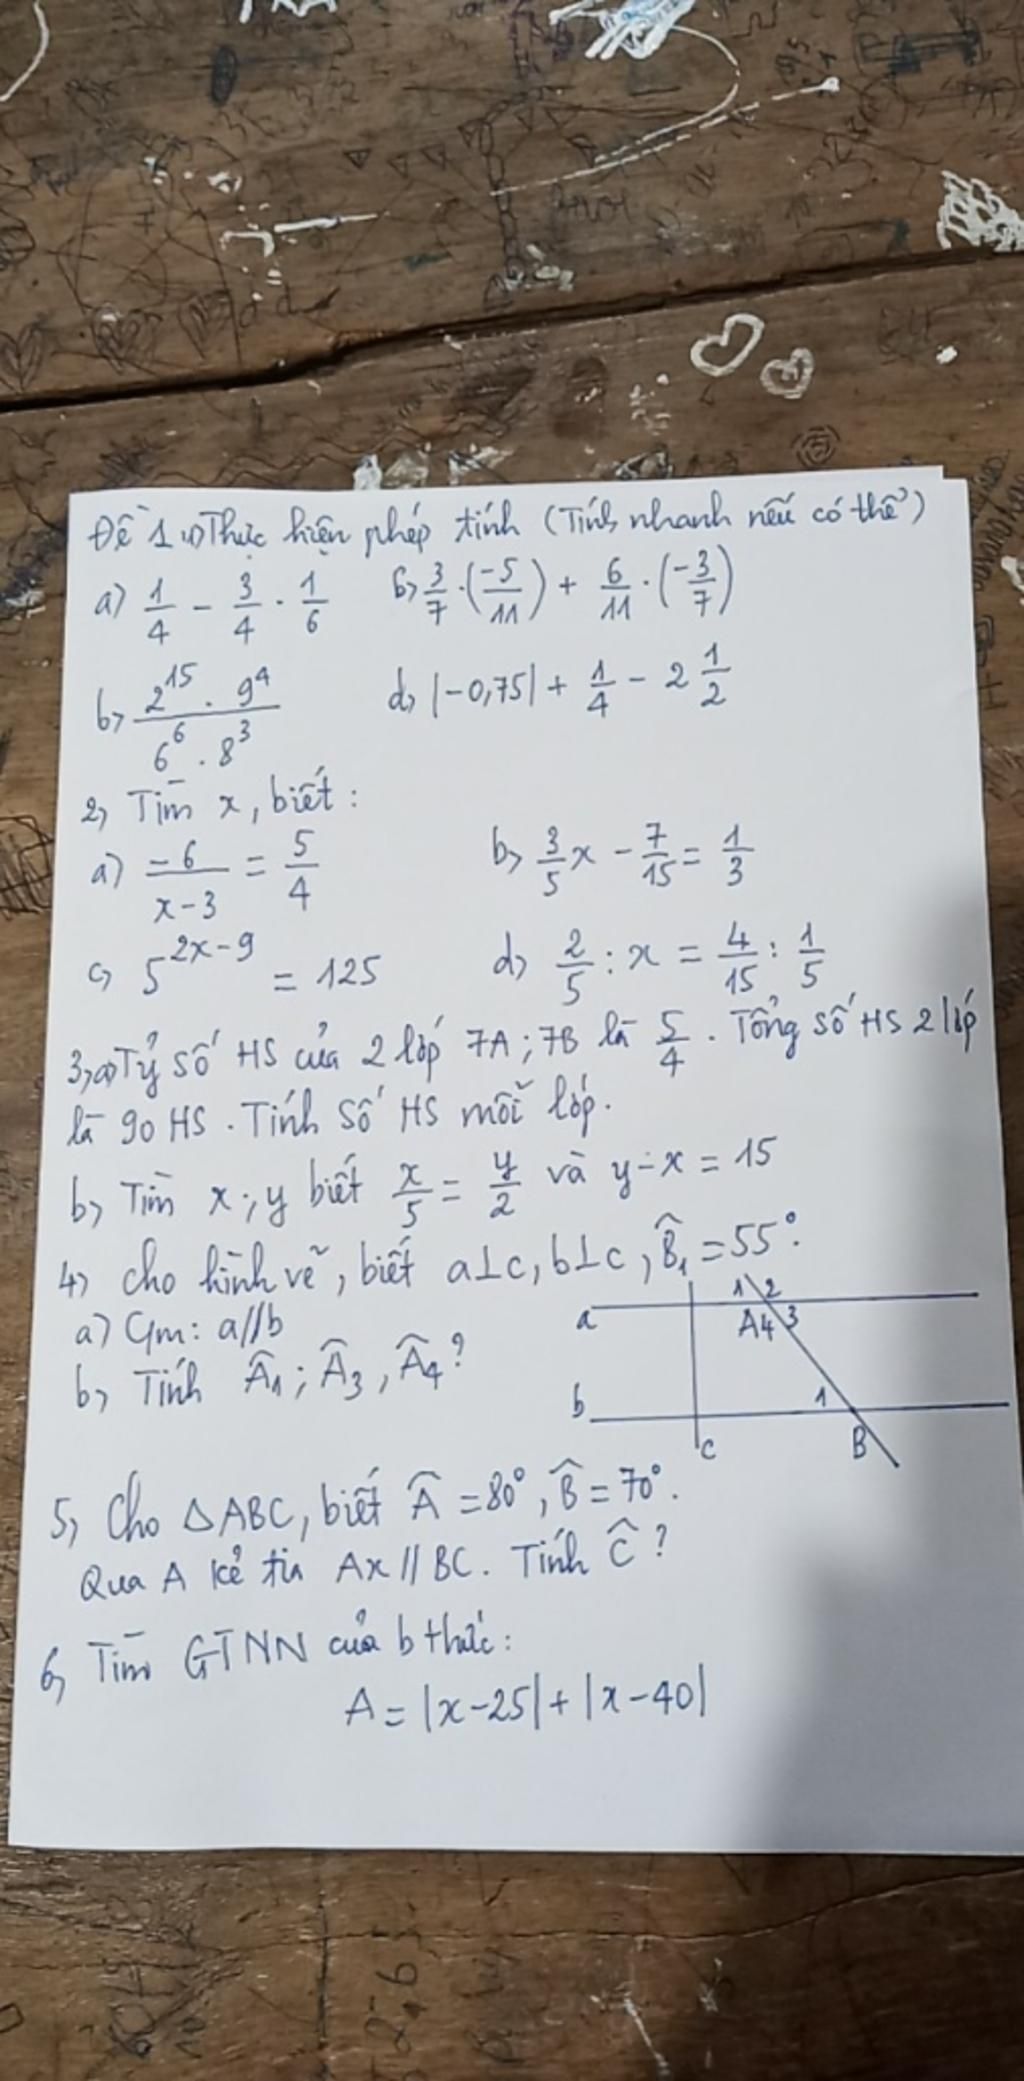 Đề 1 1) Thực hiện phép tính (Tính nhanh nếu có thể)
a) 1/4 - 3/4 . 1/6 b) 3/7 . (-5/11) + 6/11 . (-3/7)
b) 2^15 . 9^4 / 6^6 . 8^3 d) |-0,75| + 1/4 - 2 1/2
2) Tìm x, biết :
a) -6/x-3 = 5/4 b) 3/5 x - 7/15 = 1/3
c) 5^2x-9 = 125 d) 2/5 : x = 4/15 : 1/5
3) a) Tỷ số HS của 2 lớp 7A ; 7B là 5/4 . Tổng số HS 2 lớp
là 90 HS . Tính số HS mỗi lớp.
b) Tìm x ; y biết x/5 = y/2 và y - x = 15
4) Cho hình vẽ, biết a⊥c, b⊥c, B̂₁ = 55°.
a) Cm: a//b
b) Tính Â₁ ; Â₃ , Â₄ ?
1 2
a A 4 3
b 1
c B
5) Cho ΔABC, biết Â = 80°, B̂ = 70°.
Qua A kẻ tia Ax // BC. Tính Ĉ ?
6) Tìm GTNN của b thức :
A = |x-25| + |x-40|